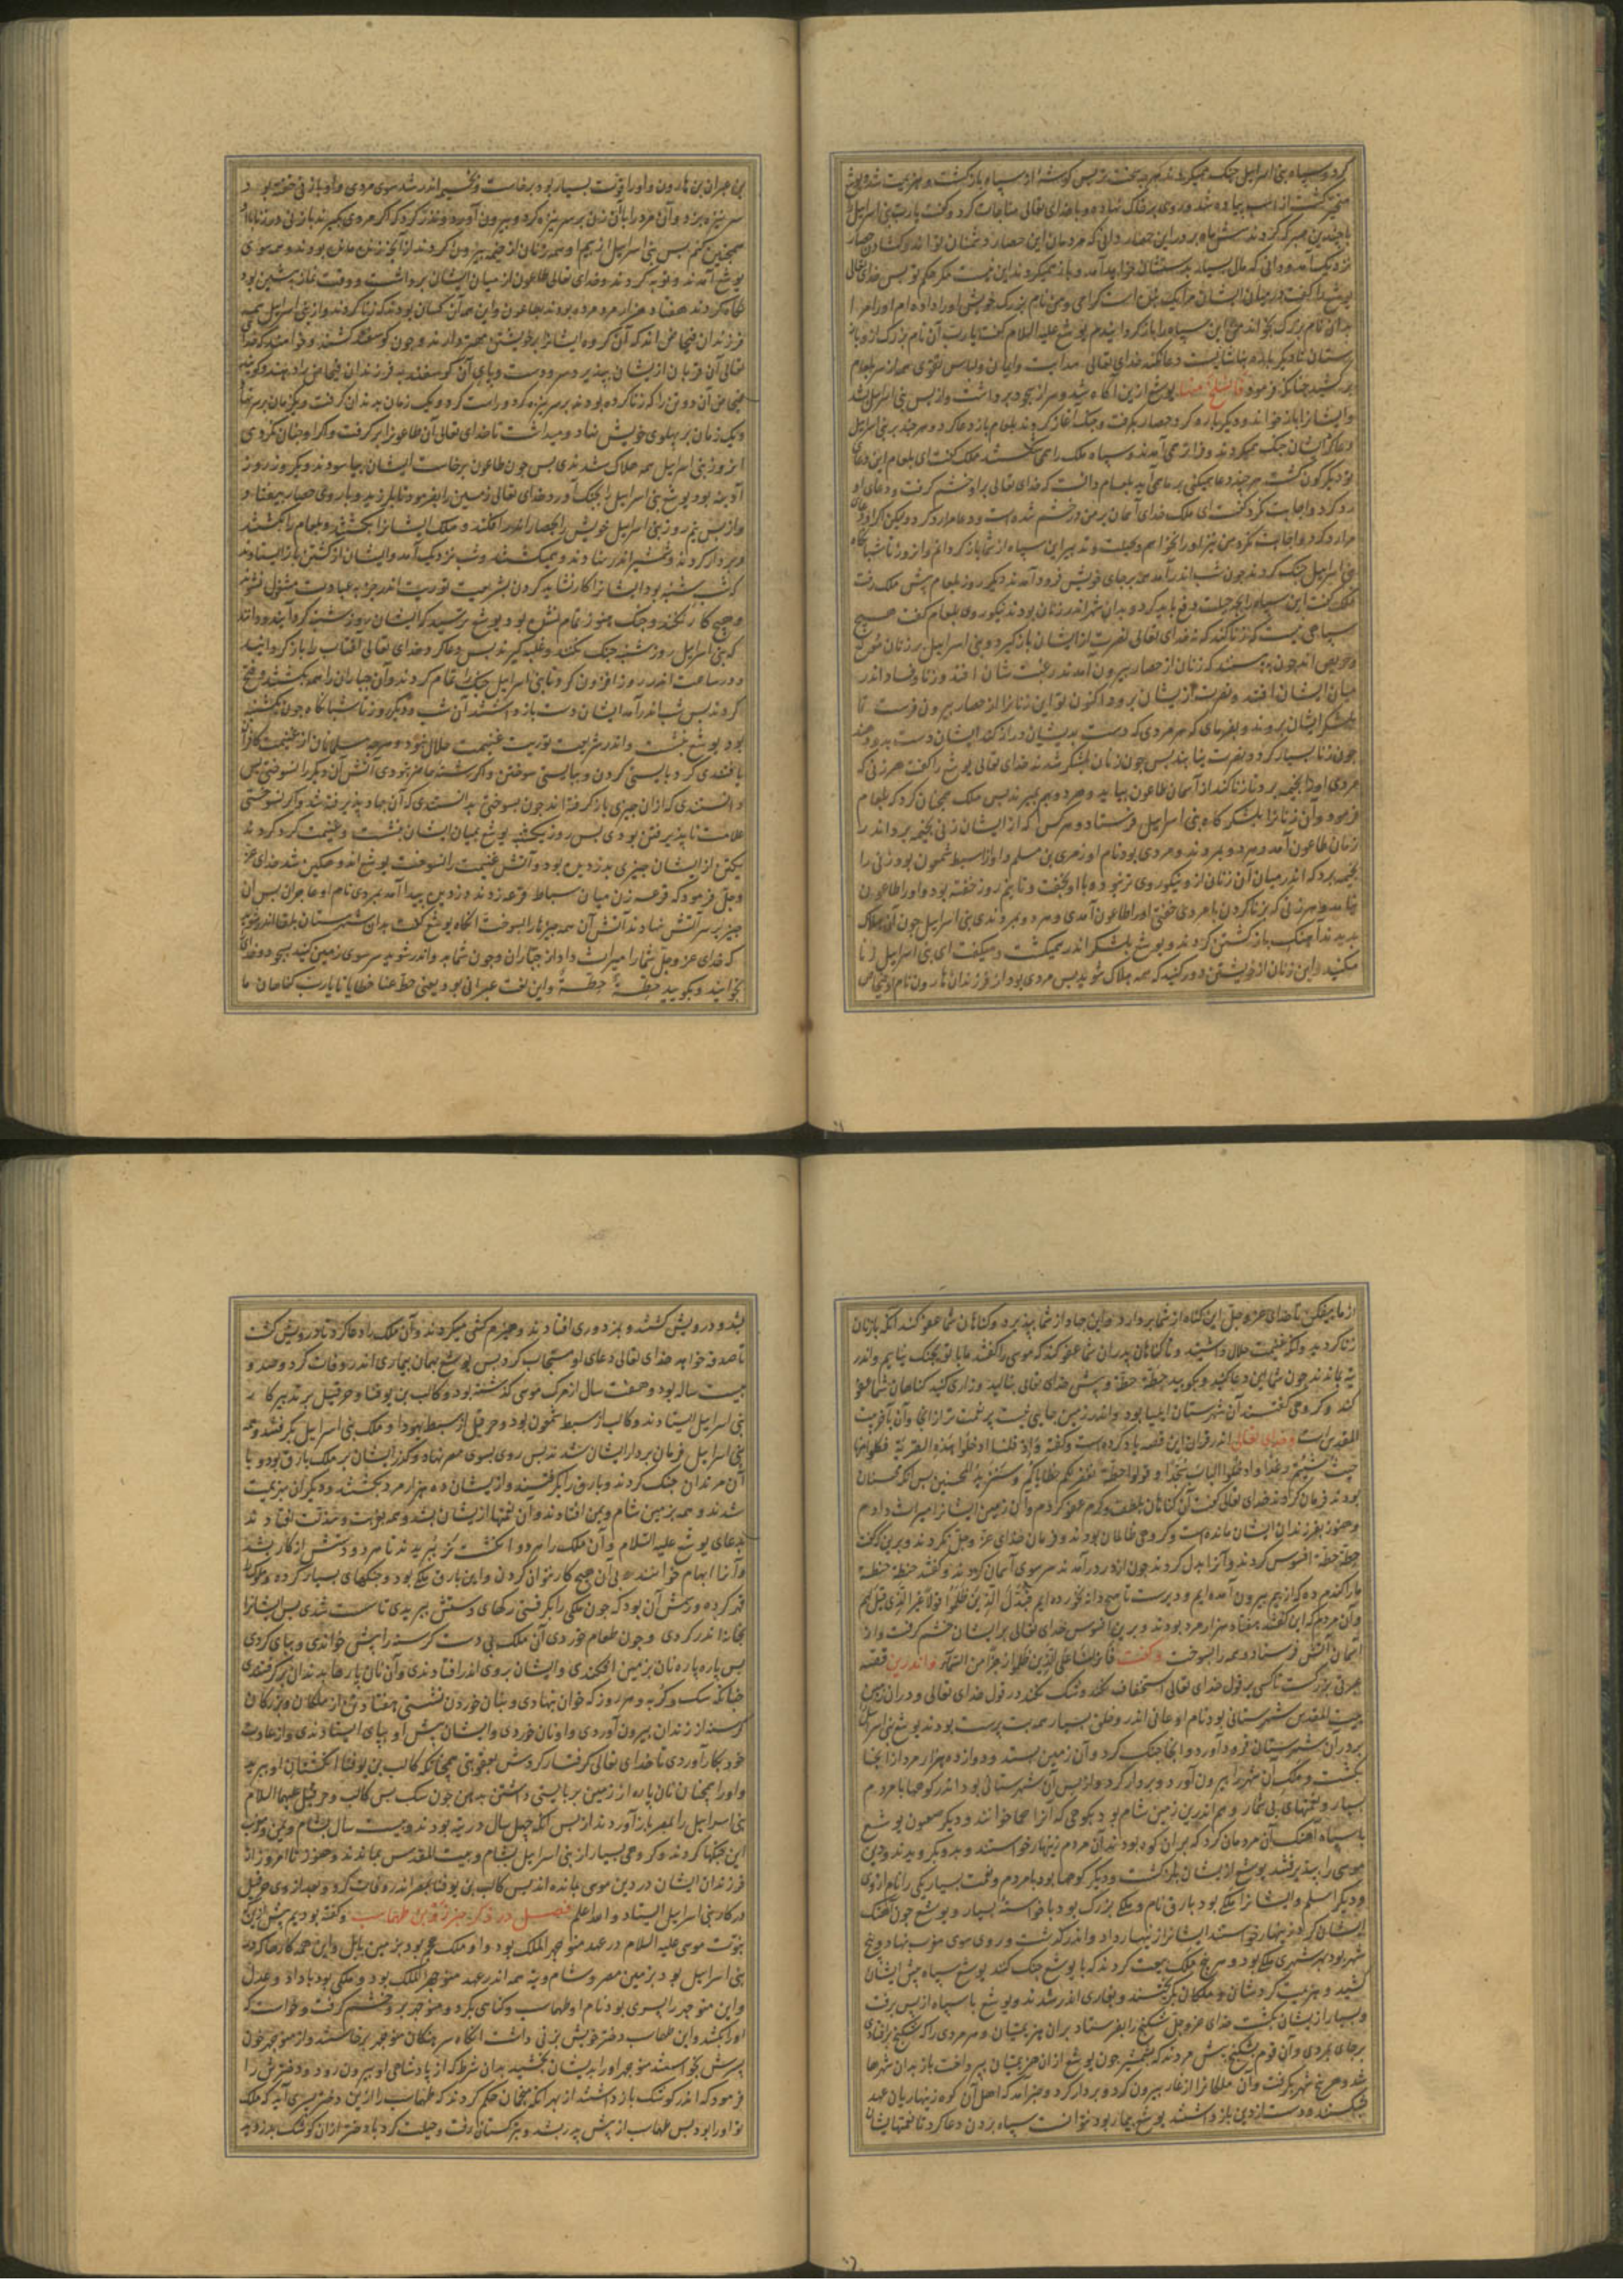 کرد و سپاه بنی اسرائیل جنک همیکردند هرچه سخت تر پس کوشه از سپاه بازکشت و هزیمت شد و یوشع
متحیر کشت از اسب پیاده شد و روی بر خاک نهاد و با خدای تعالی مناجات کرد و کفت یا رب بنی اسرائیل
نزدیک آمد و دانی که مال بسیار بدستشان فراز آمد و باز همیکردند این نیست مکر بحکم تو پس خدای تعالی
یوشع را کفت در میان ایشان مرا یک بنده است کرامی و من نام بزرک خویش او را داده ام او را مرا
بدان نام بزرک بخواند من این سپاه را باز کردانیدم یوشع علیه السلام کفت یا رب آن نام بزرک از و باز
بستان تا دیکر باره دعا نکند خدای تعالی هدایت و ایمان و لباس تقوی همه از سر بلعام
برکشید چنانکه فرمود فانسلخ منها یوشع ازین آکاه شد و سر از سجود برداشت و از پس بنی اسرائیل شد
و ایشانرا باز خواند و دیکر باره کرد حصار بکرفت و جنک آغاز کردند بلعام باز دعا کرد و هرچند بر بنی اسرائیل
دعا کرد ایشان جنک همیکردند و فراتر می آمدند و سپاه ملک را همی کشتند ملک کفت ای بلعام این دعای
تو دیکرکون کشت هرچند دعا میکنی بر ما می آید بلعام دانست که خدای تعالی بر او خشم کرفت و دعای او
رد کرد و اجابت نکرد کفت ای ملک خدای آسمان بر من خشم شده است و دعا مرا رد کرد ولیکن اکر او دعای
مرا رد کرد و اجابت نکرد من نیز او را نخواهم و بحیلت و تدبیر این سپاه از شما باز کردانم و آنروز تا شبانکاه
بنی اسرائیل جنک کردند چون شب اندر آمد هر بر جای خویش فرود آمدند دیکر روز بلعام پیش ملک رفت
ملک کفت این سپاه را بچه حیلت دفع باید کرد و بدان شهر اندر زنان بودند نیکوروی بلعام کفت هیچ
سپاهی نیست که زنا کند که نه خدای تعالی نصرت از ایشان باز کیرد و بنی اسرائیل بر زنان شوخ
و حریص اند چون به بینند که زنان از حصار بیرون آمدند رغبت شان افتد و زنا و فساد اندر
میان ایشان افتد و نصرت از یشان برود اکنون تو این زنانرا از حصار بیرون فرست تا
بلشکر ایشان بروند و بفرمای که هر مردی که دست بدیشان دراز کند ایشان دست بدو دهند
چون زنا بسیار کرد و نصرت نیابند پس چون زنان بلشکر شدند خدای تعالی یوشع را کفت هر زنی که
مردی او را بخیمه برد تا زنا کند از آسمان طاعون بیاید و هر دو بمیرند پس ملک همچنان کرد که بلعام
فرمود و آن زنانرا بلشکرکاه بنی اسرائیل فرستاد و هر کس که از ایشان زنی بخیمه برد اندر
زمان طاعون آمد و هر دو بمردند و مردی بود نام او زمری بن سلم و او از سبط شمعون بود زنی را
بخیمه برد که اندر میان آن زنان ازو نیکوروی تر نبود و با او بخفت و تا نیم روز خفته بود و او را طاعون
نیامد و هر زنی که بزنا کردن با مردی خفتی او را طاعون آمدی و هر دو بمردندی بنی اسرائیل چون آن هلاک
بدیدند آهنک باز کشتن کردند و یوشع بلشکر اندر همیکشت و میکفت ای بنی اسرائیل زنا
مکنید و این زنان از خویشتن دور کنید که همه هلاک شوید پس مردی بود از فرزندان هارون نام او فنحاص
بن عیزار بن هارون و او را قوت بسیار بود برخاست و بخیمه اندر شد سوی مردی و او با زنی خفته بود
سر نیزه بزد و آن مرد را با آن زن بر سر نیزه کرد و بیرون آورد و نذر کرد که اکر مردی بکیرند با زنی در زنا با او
همچنین کنم پس بنی اسرائیل از بیم او همه زنان از خیمه بیرون کردند از آنجه زنش مانده بودند و همه سوی
یوشع آمدند و توبه کردند و خدای تعالی طاعون از میان ایشان برداشت و وقت نماز پیشین بود
نکاه کردند هفتاد هزار مرد مرده بودند بطاعون و این همه آن کسان بودند که زنا کردند و از بنی اسرائیل همه
تعالی آن قربان از یشان بپذیرد سر و دست و پای آن کوسفند بفرزندان فنحاص دهند و کویند
فنحاص آن دو تن را که زنا کرده بودند بر سر نیزه کرد و راست کرد و یک زمان بدندان کرفت و یکزمان بر سر نهاد
و یک زمان بر پهلوی خویش نهاد و میداشت تا خدای تعالی آن طاعونرا برکرفت و اکر او چنان نکردی
آنروز بنی اسرائیل همه هلاک شدندی پس چون طاعون برخاست ایشان بیاسودند و دیکر روز روز
آدینه بود یوشع بنی اسرائیل را بجنک آورد و خدای تعالی زمین را بفرمود تا بلرزید و باروی حصار بیفتاد و
و از پس نیم روز بنی اسرائیل خویش را بحصار اندر افکند و ملک ایشانرا بکشتند و بلعام را بکشتند
و بردار کردند و شمشیر اندر نهادند و همیکشتند و شب نزدیک آمد و ایشان از کشتن باز ایستادند
که شب شنبه بود ایشانرا کار نشاید کردن بشریعت توریت اندر جز به عبادت مشغول نشوند
و هیچ کار نکنند و جنک هنوز تمام نشده بود یوشع بترسید که ایشان روز شنبه کرد آیند و دانند
که بنی اسرائیل روز شنبه جنک نکنند و غلبه کیرند پس دعا کرد و خدای تعالی آفتاب را باز کردانید
و در ساعت اندر روز افزون کرد تا بنی اسرائیل جنک را تمام کردند و آن جباران را همه بکشتند و فتح
کردند پس شب اندر آمد ایشان دست باز داشتند آن شب و دیکر روز تا شبانکاه چون یکشنبه
بود یوشع بنشست و اندر شریعت توریت غنیمت حلال نبود و هرچه مسلمانان از غنیمت کافران
یافتندی کرد بایستی کردن و ببایستی سوختن و اکر رشته خامتر بودی آتش آن دیکر را نسوختی پس
دانستندی که ازان چیزی بازکرفته اند چون بسوختی بدانستندی که آن جهاد پذیرفته شد و اکر نسوختی
علامت ناپذیرفتن بودی پس روز یکشنبه یوشع بمیان ایشان بنشست و غنیمت کرد کردند
یکتن از ایشان چیزی بدزدیده بود و آتش غنیمت را نسوخت یوشع اندوهکین شد خدای عز
و جل فرمود که قرعه زن میان سباط قرعه زدند دزدیده پیدا آمد بمردی نام او عاجران پس آن
چیز بر سر آتش نهاد تا آتش آن همه چیزها را بسوخت آنکاه یوشع کفت بدان شهرستان بلقا اندر شوید
که خدای عز و جل شما را میراث داد از جباران و چون شما بدو اندر شوید سر سوی زمین کنید بسجود و خدایرا
بخوانید و بکویید حطة حطة و این لغت عبرانی بود یعنی حط عنا خطایانا یا رب کناهان ما
از ما بیفکن تا خدای عز و جل این کناه از شما بردارد و این جهاد از شما بپذیرد و کناهان شما عفو کند آنکه با زنان
زنا کردید و آنکه غنیمت حلال داشتید و تا کناهان پدران شما عفو کند که موسی را کفتند ما با تو بجنک نیاییم و اندر
تیه بماندند چون شما این دعا کنید و بکویید حطة حطة و پیش خدای تعالی بنالید و زاری کنید کناهان شما عفو
کند و کروهی کفتند آن شهرستان ایلیا بود و اندر زمین جایی نیست پر نعمت تر از آنجا و آن بآخر بیت
المقدس است و خدای تعالی اندر قرآن این قصه یاد کرده است و کفته و اذ قلنا ادخلوا هذه القریة فکلوا منها
حیث شئتم رغدا و ادخلوا الباب سجدا و قولوا حطة نغفر لکم خطایاکم و سنزید المحسنین پس آنکه محسنان
بودند فرمان کردند خدای تعالی کفت آن کناهان بلطف و کرم عفو کردم و آن زمین ایشانرا میراث دادم
و هنوز بفرزندان ایشان مانده است و کروهی ظالمان بودند و فرمان خدای عز و جل نکردند و برین کفت
حطة حطة افسوس کردند و آنرا بدل کردند چون از در درآمدند سر سوی آسمان کردند و کفتند حنطة حنطة
و آن مردم که این کفتند هفتاد هزار مرد بودند و برین افسوس خدای تعالی بر ایشان خشم کرفت و از
آسمان آتش فرستاد و همه را بسوخت و کفت فانزلنا علی الذین ظلموا رجزا من السماء و اندرین قصه
عبرتی بزرکست تا کسی بر قول خدای تعالی استخفاف نکند و شک نکند در قول خدای تعالی و دران زمین
بیت المقدس شهرستانی بود نام او عانی اندر و خلقی بسیار همه بت پرست بودند یوشع بنی اسرائیل
بدر آن شهرستان فرود آورد و آنجا جنک کرد و آن زمین بستد و دوازده هزار مرد از آنجا
بکشت و ملک آن شهر را بیرون آورد و بردار کرد و از پس آن شهرستانی بود اندر کوهها با مردم
بسیار و نعمتهای بی شمار و هم اندرین زمین شام بود بکوهی که آنرا عما خوانند و دیکر صعیون یوشع
با سپاه آهنک آن مردمان کرد که بران کوه بودند آن مردم زینهار خواستند و بدو بکرویدند و دین
موسی را بپذیرفتند یوشع از یشان بازکشت و دیکر کوهها بود با مردم و نعمت بسیار یکی را نام ازوی
و دیکر اسلم و ایشانرا ملکی بود بارق نام و ملکی بزرک بود با خواسته بسیار و یوشع چون آهنک
ایشان کرد زینهار خواستند ایشانرا زینهار داد و اندر کذشت و روی سوی مغرب نهاد و پنج
شهر بود بهر شهری ملکی بود و هر پنج ملک بیعت کردند که با یوشع جنک کنند یوشع سپاه پیش ایشان
کشید و هزیمت کردشان و ملکان بکریختند و بغاری اندر شدند و یوشع با سپاه از پس برفت
و بسیار از یشان بکشت خدای عز و جل شکنج را بفرستاد بران هزیمتیان و هر مردی را که شکنج برافتادی
برجای بمردی و آن قوم بشکنج بیش مردند که بشمشیر چون یوشع ازان هزیمتیان بپرداخت باز بدان شهرها
شد و هر پنج شهر بکرفت و آن ملکانرا از غار بیرون کرد و بردار کرد و خبر آمد که اهل آن کوه زینهاریان عهد
بشکستند و دست از دین بازداشتند یوشع بیمار بود نتوانست سپاه بردن دعا کرد تا نعمتهایشان
بشد و درویش کشتند و بمزدوری افتادند و هیزم کشی میکردند و آن ملک را دعا کرد تا درویش کشت
تا صدقه خواهد خدای تعالی دعای او مستجاب کرد پس یوشع بهمان بیماری اندر وفات کرد و صد و
بیست ساله بود و هفت سال از مرک موسی کذشته بود و کالب بن یوفنا و حزقیل بر تدبیر کار
بنی اسرائیل ایستادند و کالب از سبط شمعون بود و حزقیل از سبط یهودا و ملک بنی اسرائیل بکرفتند و همه
بنی اسرائیل فرمان بردار ایشان شدند پس روی بسوی مصر نهاد و کذر ایشان بر ملک بارق بود و با
آن مرتدان جنک کردند و بارق را بکرفتند و از یشان ده هزار مرد بکشتند و دیکران بهزیمت
شدند و همه بزمین شام و یمن افتادند و آن نعمتها از یشان بشد و همه بغربت و مذلت افتادند
بدعای یوشع علیه السلام و آن ملک را هر دو انکشت نر ببریدند تا هر دو دستش از کار بشد
و آنرا ابهام خوانند که بی آن هیچ کار نتوان کردن و این بارق ملکی بود و جنکهای بسیار کرده و ملوکانرا
قهر کرده و رسمش آن بود که چون ملکی را بکرفتی رکهای دستش ببریدی تا سست شدی پس ایشانرا
بخانه اندر کردی و چون طعام خوردی آن ملک بی دست کرسنه را پیش خواندی و بپای کردی
پس پاره پاره نان بزمین افکندی و ایشان بروی اندر افتادندی و آن نان پارها بدندان برکرفتندی
چنانکه سک و کربه و هر روز که خوان بنهادی و بنان خوردن نشستی هفتاد تن از ملکان و بزرکان
کرسنه از زندان بیرون آوردی و او نان خوردی و ایشان پیش او بپای ایستادندی و از عادت
خود بکار آوردی تا خدای تعالی کرفتار کردش بعقوبتی همچنانکه کالب بن یوفنا انکشتان او ببرید
و او را همچنان نان پاره از زمین بربایستی داشتن بدهن چون سک پس کالب و حزقیل علیهما السلام
بنی اسرائیل را بمصر باز آوردند از پس آنکه چهل سال در تیه بودند و بیست سال بشام و یمن و مغرب
این جنکها کردند و کروهی بسیار از بنی اسرائیل بشام و بیت المقدس بماندند و هنوز تا امروز از
فرزندان ایشان در دین موسی مانده اند پس کالب بن یوفنا بمصر اندر وفات کرد و بعد از وی حزقیل
در کار بنی اسرائیل ایستاد و الله اعلم فصل در ذکر خبر زو بن طهماسب و کفته بودیم پیش ازین که
بنوت موسی علیه السلام در عهد منوچهر الملک بود و او ملک عجم بود بزمین بابل و این همه کارها که در
بنی اسرائیل بود بزمین مصر و شام و تیه همه اندر عهد منوچهر الملک بود و ملکی بود با داد و عدل
و این منوچهر را پسری بود نام او طهماسب و کناهی بکرد و منوچهر برو خشم کرفت و خواست که
او را بکشد و این طهماسب دختر خویش بزنی داشت آنکاه سرهنکان منوچهر برخاستند و از منوچهر خون
پسرش بخواستند منوچهر او را بدیشان بخشید بدان شرط که از پادشاهی او بیرون رود و دخترش را
فرمود که اندر کوشک باز داشتند از بهر آنکه منجمان حکم کردند که طهماسب را ازین دختر پسری آید که ملک
تو او را بود پس طهماسب از پیش پدر بشد و بترکستان رفت و حیلت کرد تا دختر ازان کوشک بدزدید